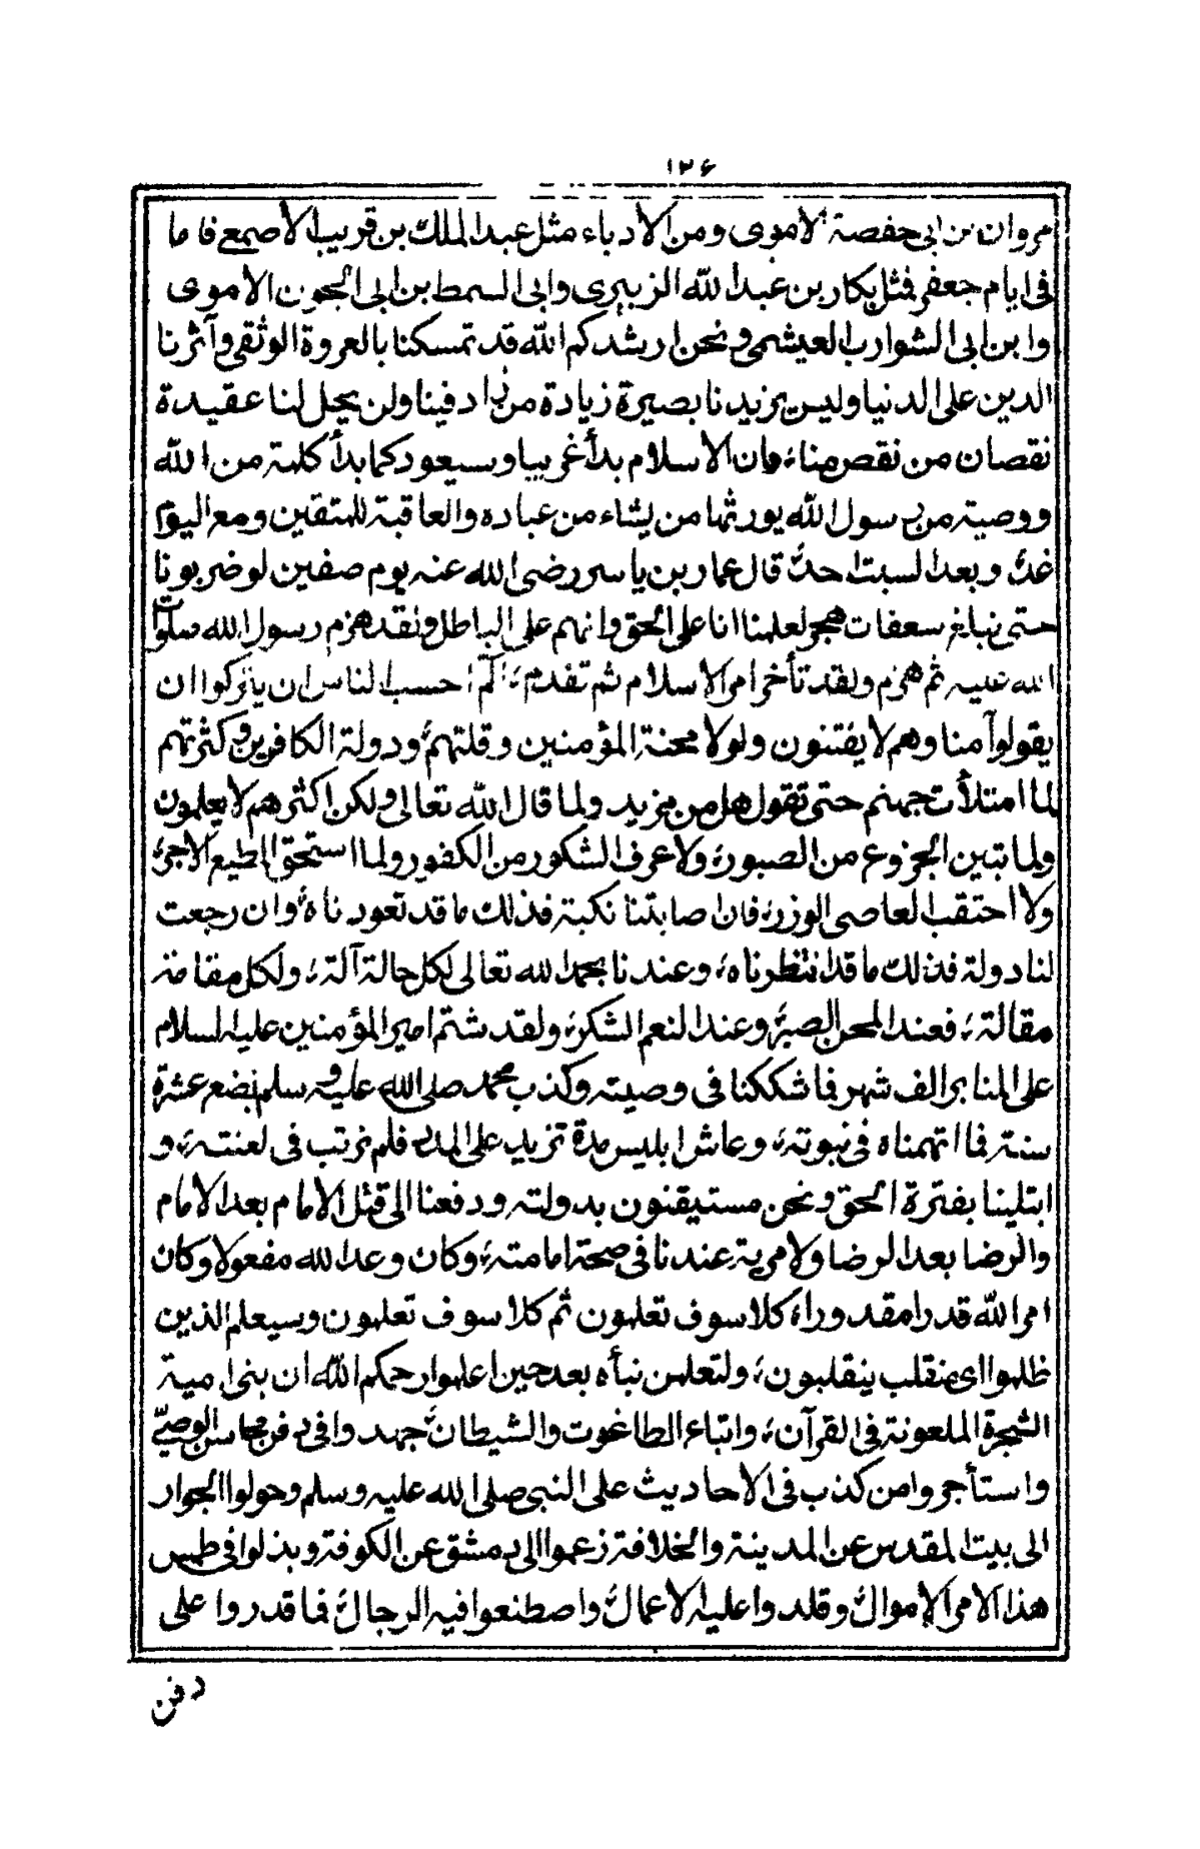 ١٣۶
مروان بن ابى حفصة الاموى ومن الأدباء مثل عبد الملك بن قريب الأصمعى فاما
فى ايام جعفر فمثل بكار بن عبد الله الزبيرى وابى السمط بن ابى الجون الاموى
وابن ابى الشوارب العبشمى ونحن ارشدكم الله قد تمسكنا بالعروة الوثقى وآثرنا
الدين على الدنيا وليس يزيدنا بصيرة زيادة من زاد فينا ولن يحل لنا عقيدة
نقصان من نقص مناء، فان الاسلام بدأ غريبا وسيعود كما بدأ كلمة من الله
ووصية من رسول الله يورثها من يشاء من عباده والعاقبة للمتقين ومع اليوم
غد، وبعد السبت احد، قال عمار بن ياسر رضى الله عنه يوم صفين لو ضربونا
حتى نبلغ سعفات هجر لعلمنا انا على الحق وانهم على الباطل ولقد هزم رسول الله صلوات
الله عليه ثم هزم ولقد تأخر امر الاسلام ثم تقدم، الٓمٓ احسب الناس ان يتركوا ان
يقولوا آمنا وهم لا يفتنون ولولا محنة المؤمنين وقلتهم، ودولة الكافرين وكثرتهم
لما امتلأت جهنم حتى تقول هل من مزيد ولما قال الله تعالى ولكن اكثرهم لا يعلمون
ولما تبين الجزوع من الصبور، ولا عرف الشكور من الكفور ولما استحق المطيع الاجر،
ولا احتقب العاصى الوزر، فان اصابتنا نكبة فذلك ما قد تعودناه، وان رجعت
لنا دولة فذلك ما قد انتظرناه، وعندنا بحمد الله تعالى لكل حالة آلة، ولكل مقامة
مقالة، فعند المحن الصبر، وعند النعم الشكر، ولقد شتم امير المؤمنين عليه السلام
على المنابر الف شهر فما شككنا فى وصيته وكذب محمد صلى الله عليه وسلم بضع عشرة
سنة فما اتهمناه فى نبوته، وعاش ابليس مدة تزيد على المدد فلم نرتب فى لعنته، و
ابتلينا بفترة الحق ونحن مستيقنون بدولته ودفعنا الى قتل الامام بعد الامام
والرضا بعد الرضا ولا مرية عندنا فى صحة امامته، وكان وعد الله مفعولا وكان
امر الله قدرا مقدورا، كلا سوف تعلمون ثم كلا سوف تعلمون وسيعلم الذين
ظلموا اى منقلب ينقلبون، ولتعلمن نبأه بعد حين اعلموا رحمكم الله ان بنى امية
الشجرة الملعونة فى القرآن، واتباع الطاغوت والشيطان، جهدوا فى دفن محاسن الوصىّ
واستأجروا من كذب فى الاحاديث على النبى صلى الله عليه وسلم وحولوا الجوار
الى بيت المقدس عن المدينة والخلافة زعموا الى دمشق عن الكوفة وبذلوا فى طمس
هذا الامر الاموال، وقلدوا عليه الاعمال، واصطنعوا فيه الرجال، فما قدروا على
دفن